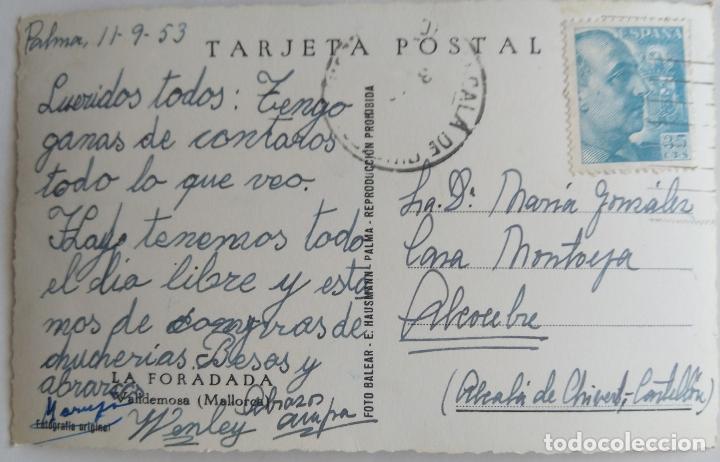 Palma, 11-9-53
TARJETA POSTAL
Queridos todos: Tengo
ganas de contaros
todo lo que veo.
Hoy tenemos todo
el dia libre y esta
mos de compras de
chucherias. Besos y
abrazos
LA FORADADA
Valldemosa (Mallorca)
Fotografía original
Maruja
Wenley
Abrazos
FOTO BALEAR - E. HAUSMANN - PALMA - REPRODUCCIÓN PROHIBIDA
ALCALA DE CHIVERT
ESPAÑA
35
CTS
Sra. Dª María González
Casa Montoya
Alcocebre
(Alcalá de Chivert, Castellón)
todocoleccion.net